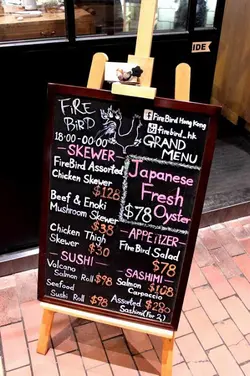 FIRE
BIRD
18:00-00:00
FireBird Hong Kong
firebird_hk
GRAND
MENU
-SKEWER-
FireBird Assorted
Chicken Skewer
$128
Beef & Enoki
Mushroom Skewer
$38
Chicken Thigh
Skewer $30
-SUSHI-
Volcano
Salmon Roll $98
Seafood
Sushi Roll $98
Japanese
Fresh
$78 Oyster
-APPETIZER-
FireBird Salad
$78
-SASHIMI-
Salmon $108
Carpaccio
Assorted $280
Sashimi (For 2)
IDE